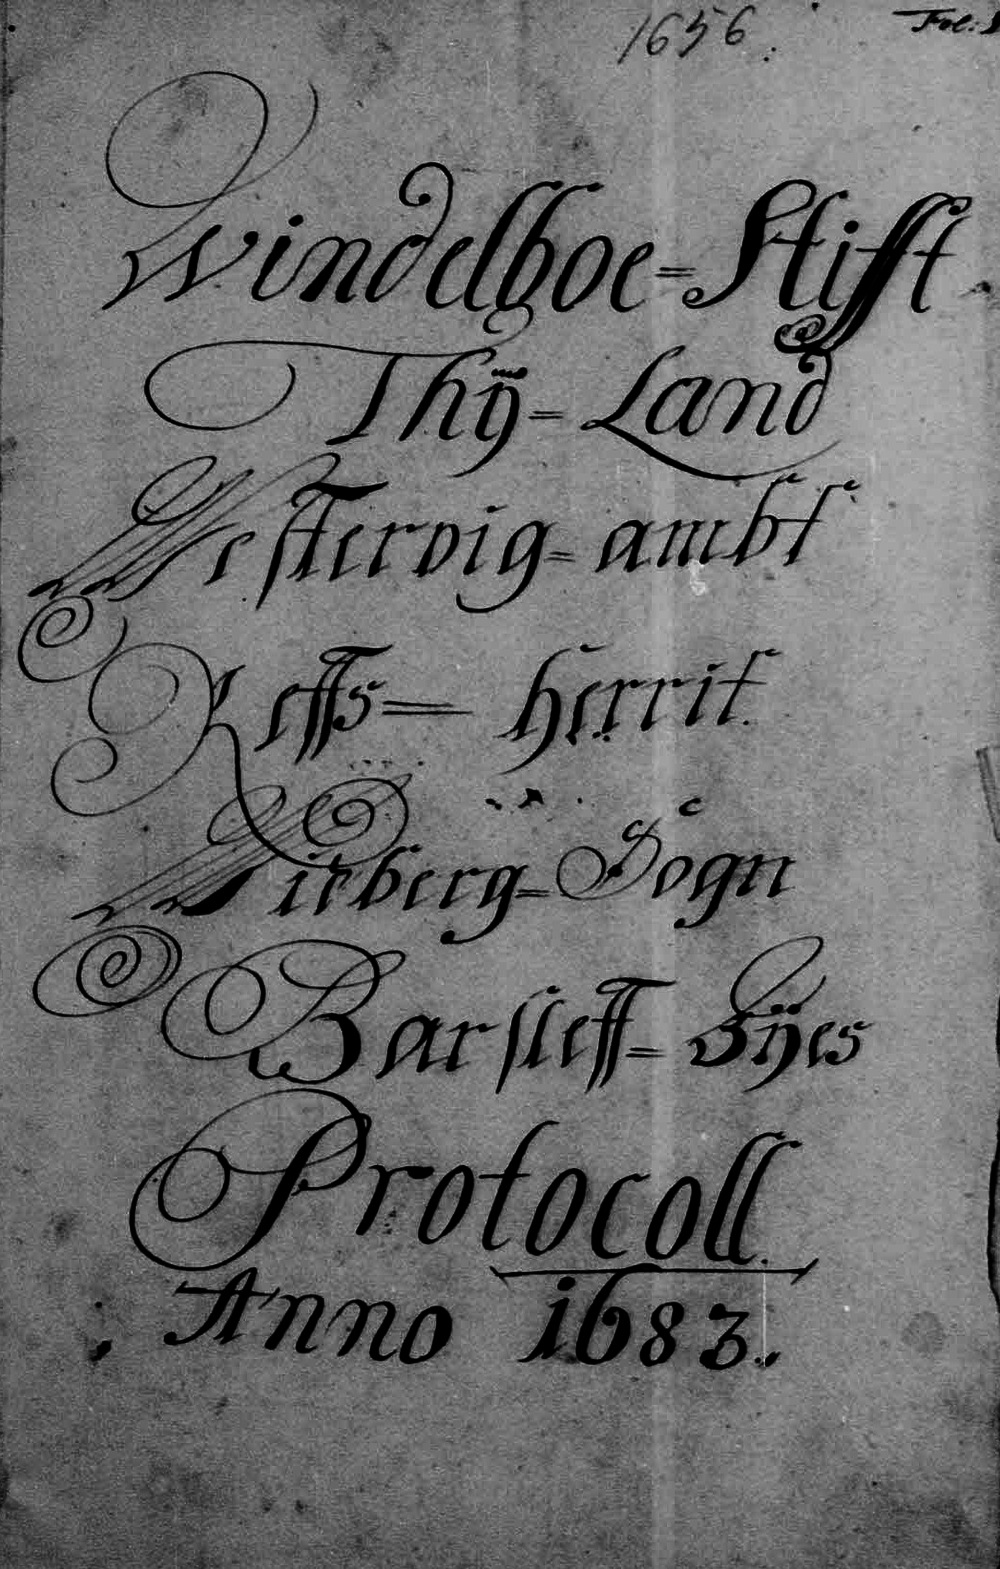 1656. Fol: 1
Windelboe=Stifft
Thÿ=Land
Westervig=ambt
Reffs= herrit
Wisberg=Sogn
Barsleff=Bÿes
Protocoll
Anno 1683.